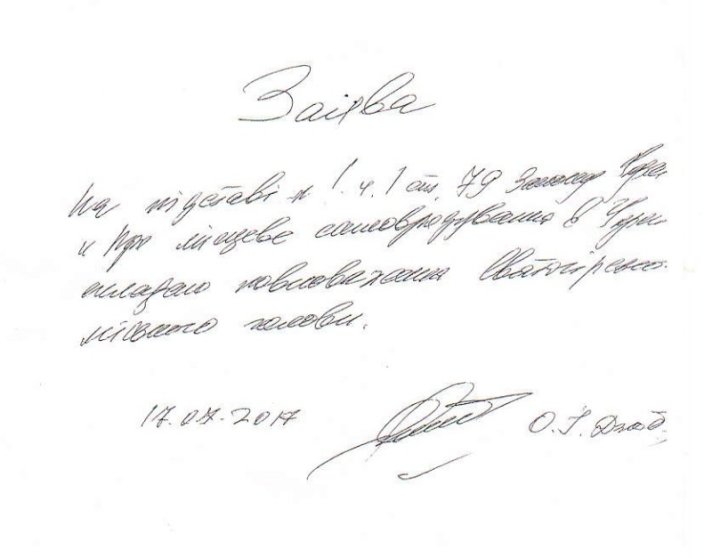 Заява
На підставі п 1. ч. 1 ст. 79 Закону Укра
" Про місцеве самоврядування в Укра
складаю повноваження Святогірсько
міського голови.
17.07.2017 О.І. Дзюб